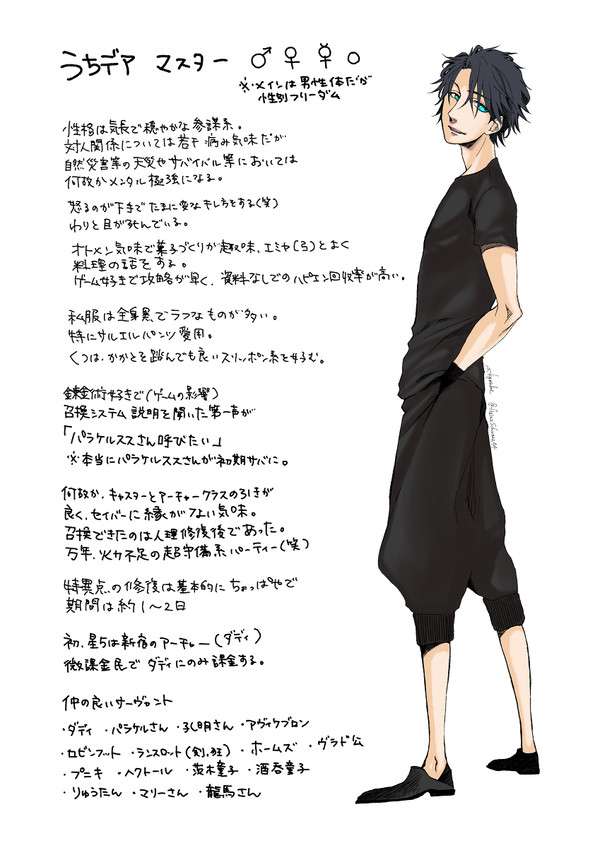 うちデア マスター ♂ ♀ ☿ ○
※・メインは男性体だが
性別フリーダム
性格は気長で穏やかな参謀系。
対人関係については若干病み気味だが
自然災害等の天災やサバイバル等においては
何故かメンタル極強になる。
怒るのが下手でたまに変なキレ方をする(笑)
わりと目が死んでいる。
オトメン気味で菓子づくりが趣味、エミヤ(弓)とよく
料理の話をする。
ゲーム好きで攻略が早く、資料なしでのハピエン回収率が高い。
私服は全身黒でラフなものが多い。
特にサルエルパンツ愛用。
くつは、かかとを踏んでも良いスリッポン系を好む。
錬金術好きで(ゲームの影響)
召喚システム説明を聞いた第一声が
「パラケルススさん呼びたい」
※本当にパラケルススさんが初期サバに。
何故か、キャスターとアーチャークラスのひきが
良く、セイバーに縁がない気味。
召喚できたのは人理修復後であった。
万年、火力不足の超守備系パーティー(笑)
特異点の修復は基本的にちょっぱやで
期間は約1～2日
初、星5は新宿のアーチャー(ダディ)
微課金民でダディにのみ課金する。
仲の良いサーヴァント
・ダディ ・パラケルさん ・孔明さん ・アヴィケブロン
・ロビンフット ・ランスロット(剣、狂) ・ホームズ ・ヴラド公
・プニキ ・ヘクトール ・茨木童子 ・酒呑童子
・りゅうたん ・マリーさん ・龍馬さん